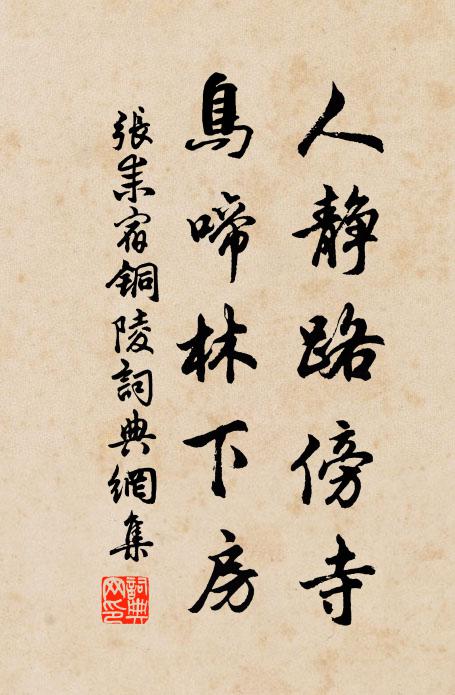 人靜路傍寺
鳥啼林下房
張耒宿銅陵詞典網集
詞典